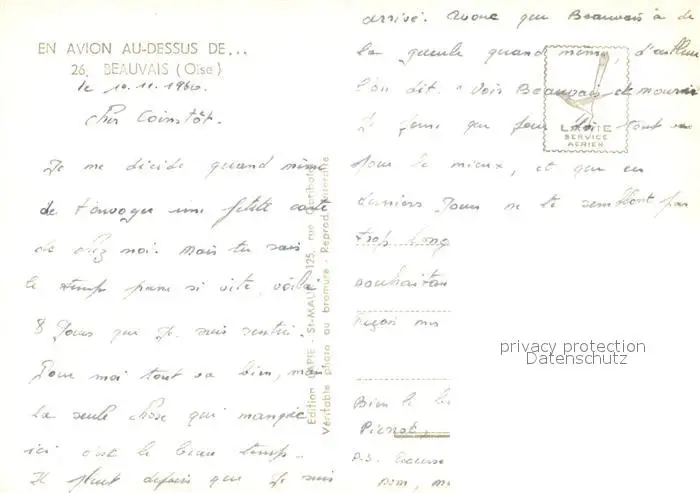 EN AVION AU-DESSUS DE...
26. BEAUVAIS (Oise)
le 10.11.1960.
Cher
Je me décide quand même
de t'envoyer une petite carte
de chez moi. Mais tu sais
le temps passe si vite, voilà
8 Jours que Je suis rentré.
Pour moi tout va bien, mais
la seule chose qui manque
ici c'est le beau temps.
Il pleut depuis que Je suis
Edition LAPIE - St-MAUR
Véritable photo au bromure - Reprod. interdite
arrivé. Avoue que Beauvais à de
la gueule quand même, d'ailleurs
l'on dit. "Voir Beauvais et mourir
Je pense que pour toi tout va
pour le mieux, et que ces
derniers Jours ne te semblent pas
trop long
souhaitan
Reçois mes
Bien le
Pierrot,
P.S.
LAPIE
SERVICE
AERIEN
privacy protection
Datenschutz